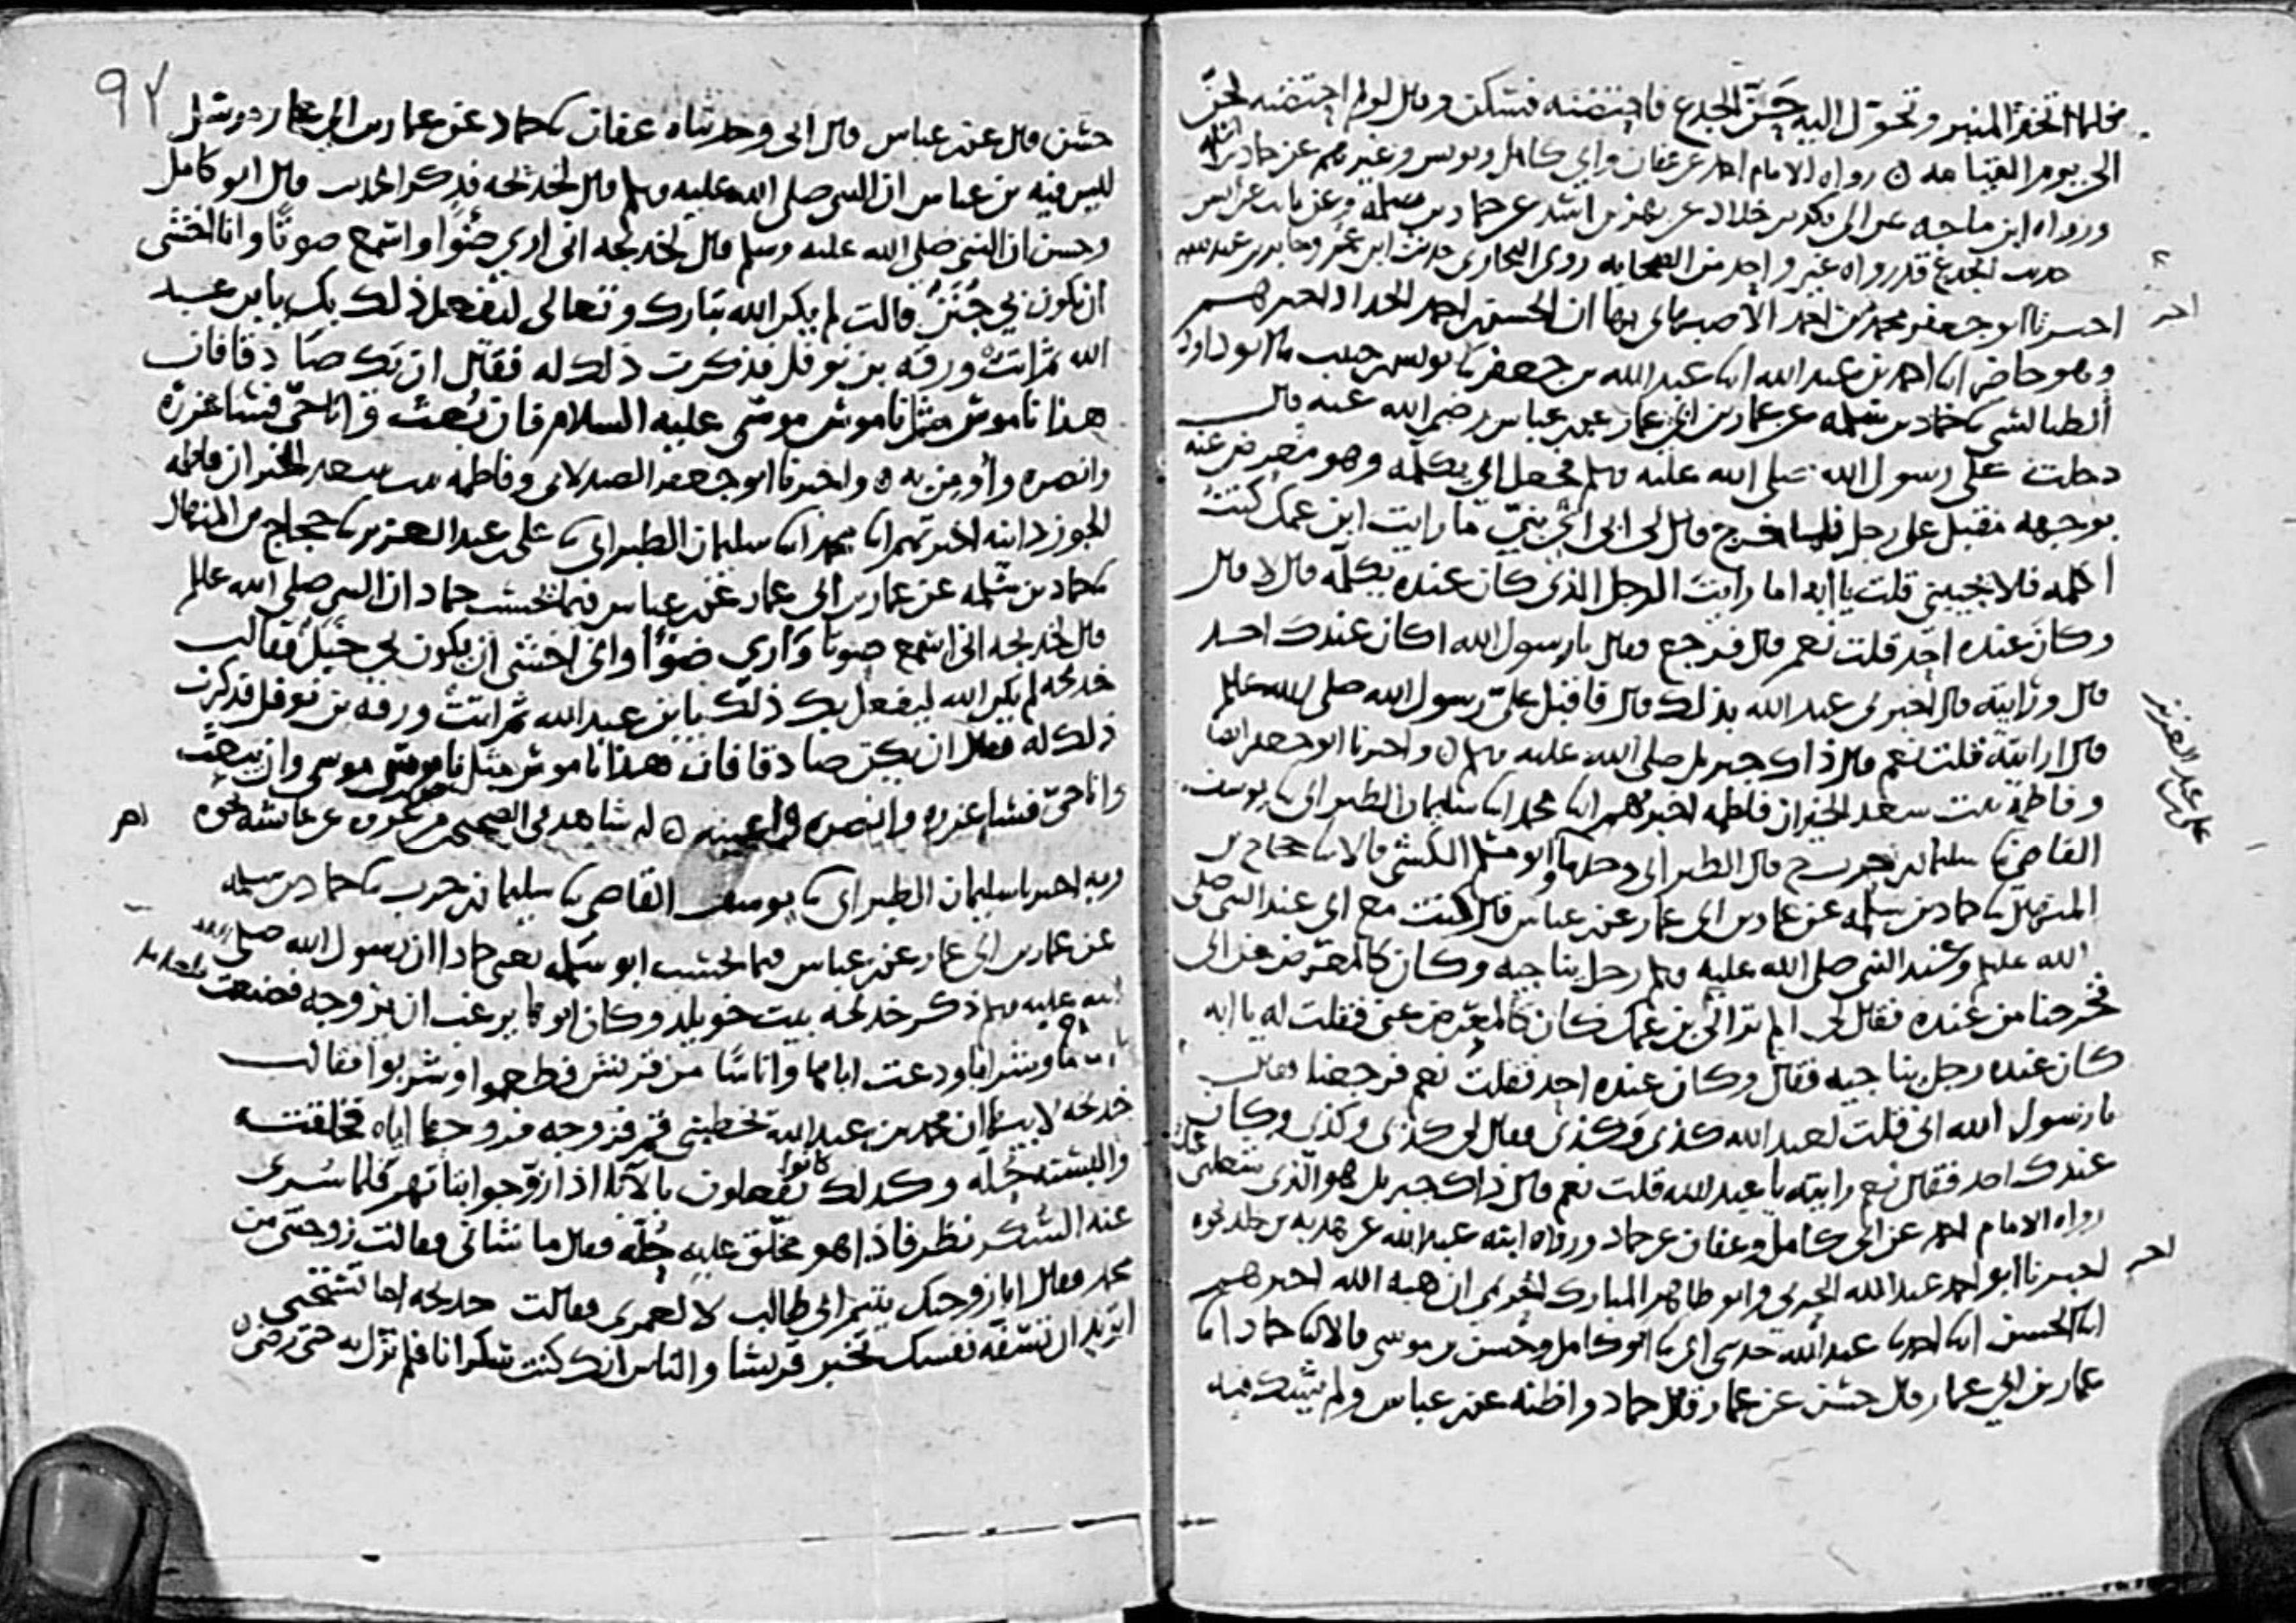 فلما اتخذ المنبر وتحول اليه حن الجذع فاحتضنه فسكن وقال لو لم احتضنه لحن
الى يوم القيامة رواه الامام احمد عن عفان وابي كامل ويونس وغيرهم عن حماد بن سلمه
ورواه ابن ماجه عن ابي بكر بن خلاد عن بهز بن اسد عن حماد بن سلمة وعن ثابت عن انس
حديث الجذع قد رواه غير واحد من الصحابه روى البخاري حديث ابن عمر وجابر بن عبد الله
اخبرنا ابو جعفر محمد بن احمد الاصبهاني بها ان الحسن بن احمد الحداد اخبرهم
وهو حاضر ابنا احمد بن عبد الله ابنا عبد الله بن جعفر ثنا يونس بن حبيب ثنا ابو داود
الطيالسي ثنا حماد بن سلمه عن عمار بن ابي عمار عن ابن عباس رضي الله عنه قال
دخلت على رسول الله صلى الله عليه وسلم فجعل ابي يكلمه وهو معرض عنه
بوجهه مقبل على رجل فلما خرج قال لي ابي اي بني ما رايت ابن عمك كنت
اكلمه فلا يجيبني قلت يا ابه اما رايت الرجل الذي كان عنده يكلمه قال لا قال
وكان عنده احد قلت نعم قال فرجع فقال يا رسول الله اكان عندك احد
قال ورايته قال اخبرني عبد الله بذلك قال فاقبل علي رسول الله صلى الله عليه وسلم
قال ارايته قلت نعم قال ذاك جبريل صلى الله عليه وسلم واخبرنا ابو جعفر ايضا
وفاطمة بنت سعد الخير ان فاطمه اخبرتهم ابنا محمد ابنا سليمان الطبراني ثنا يوسف
القاضي ثنا سليمان بن حرب ح قال الطبراني وحدثنا ابو مسلم الكشي قالا ثنا حجاج بن
المنهال ثنا حماد بن سلمه عن عمار بن ابي عمار عن ابن عباس قال كنت مع ابي عند النبي صلى
الله عليه وسلم وعند النبي صلى الله عليه وسلم رجل يناجيه وكان كالمعرض عن ابي
فخرجنا من عنده فقال لي الم تر الى ابن عمك كان كالمعرض عني فقلت له يا ابه
كان عنده رجل يناجيه فقال وكان عنده احد فقلت نعم فرجعنا فقال
يا رسول الله اني قلت لعبد الله كذى وكذى فقال لي كذى وكذى وكان
عندك احد فقال نعم رايته يا عبد الله قلت نعم قال ذاك جبريل هو الذي شغلني عنك
رواه الامام احمد عن ابي كامل وعفان عن حماد ورواه ابنه عبد الله عن هدبه بن خالد نحوه
اخبرنا ابو احمد عبد الله الحربي وابو طاهر المبارك الحريمي ان هبة الله اخبرهم
ابنا الحسن ابنا احمد ثنا عبد الله حدثني ابي ثنا ابو كامل وحسن بن موسى قالا ثنا حماد ابنا
عمار بن ابي عمار قال حسن عن عمار قال حماد واظنه عن ابن عباس ولم يشك فيه
اخر
علي بن عبد العزيز
اخر
٩٢
حسن قال عن ابن عباس قال ابي وحدثناه عفان ثنا حماد عن عمار بن ابي عمار مرسل
ليس فيه بن عباس ان النبي صلى الله عليه وسلم قال لخديجه فذكر الحديث قال ابو كامل
وحسن ان النبي صلى الله عليه وسلم قال لخديجه اني ارى ضوءا واسمع صوتا وانا اخشى
ان يكون بي جنن قالت لم يكن الله تبارك وتعالى ليفعل ذلك بك يا بن عبد
الله ثم اتت ورقه بن نوفل فذكرت ذلك له فقال ان يك صادقا فان
هذا ناموس مثل ناموس موسى عليه السلام فان بعث وانا حي فساعزره
وانصره وأومن به واخبرنا ابو جعفر الصيدلاني وفاطمه بنت سعد الخير ان فاطمه
الجوزدانيه اخبرتهم ابنا محمد ابنا سليمان الطبراني ثنا علي بن عبد العزيز ثنا حجاج بن المنهال
ثنا حماد بن سلمه عن عمار بن ابي عمار عن ابن عباس فيما يحسب حماد ان النبي صلى الله عليه وسلم
قال لخديجه اني اسمع صوتا وارى ضوءا واني اخشى ان يكون بي خبل فقالت
خديجه لم يكن الله ليفعل بك ذلك يا بن عبد الله ثم اتت ورقه بن نوفل فذكرت
ذلك له فقال ان يكن صادقا فان هذا ناموس مثل ناموس موسى وان يبعث
وانا حي فساعزره وانصره واعينه له شاهد في الصحيحين من عروه عن عائشه نحوه
وبه اخبرنا سليمان الطبراني ثنا يوسف القاضي ثنا سليمان بن حرب ثنا حماد بن سلمه
عن عمار بن ابي عمار عن ابن عباس فيما يحسب ابو سلمه يعني حمادا ان رسول الله صلى
الله عليه وسلم ذكر خديجه بنت خويلد وكان ابوها يرغب ان يزوجه فصنعت طعاما
وشرابا ودعت اباها واناسا من قريش فطعموا وشربوا فقالت
خديجه لابيها ان محمد بن عبد الله يخطبني قم فزوجه فزوجها اياه فخلقته
والبسته حله وكذلك كانوا يفعلون بالآباء اذا زوجوا بناتهم فلما سرى
عنه السكر نظر فاذا هو مخلق عليه حلة فقال ما شاني فقالت زوجتني من
محمد فقال انا ازوجك يتيم ابي طالب لا لعمري فقالت خديجه اما تستحي
اتريد ان تسفه نفسك تخبر قريشا والناس انك كنت سكرانا فلم تزل به حتى رضي
اخر